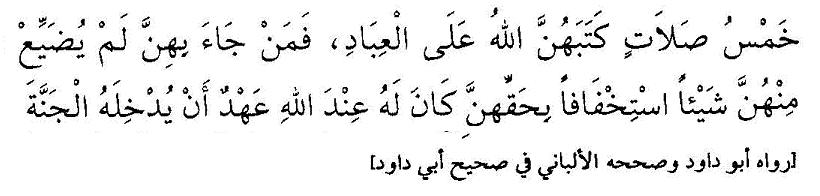 خَمْسُ صَلاَتٍ كَتَبَهُنَّ اللهُ عَلَى الْعِبَادِ، فَمَنْ جَاءَ بِهِنَّ لَمْ يُضَيِّعْ
مِنْهُنَّ شَيْئاً اسْتِخْفَافاً بِحَقِّهِنَّ كَانَ لَهُ عِنْدَ اللهِ عَهْدٌ أَنْ يُدْخِلَهُ الْجَنَّةَ
[رواه أبو داود وصححه الألباني في صحيح أبي داود]